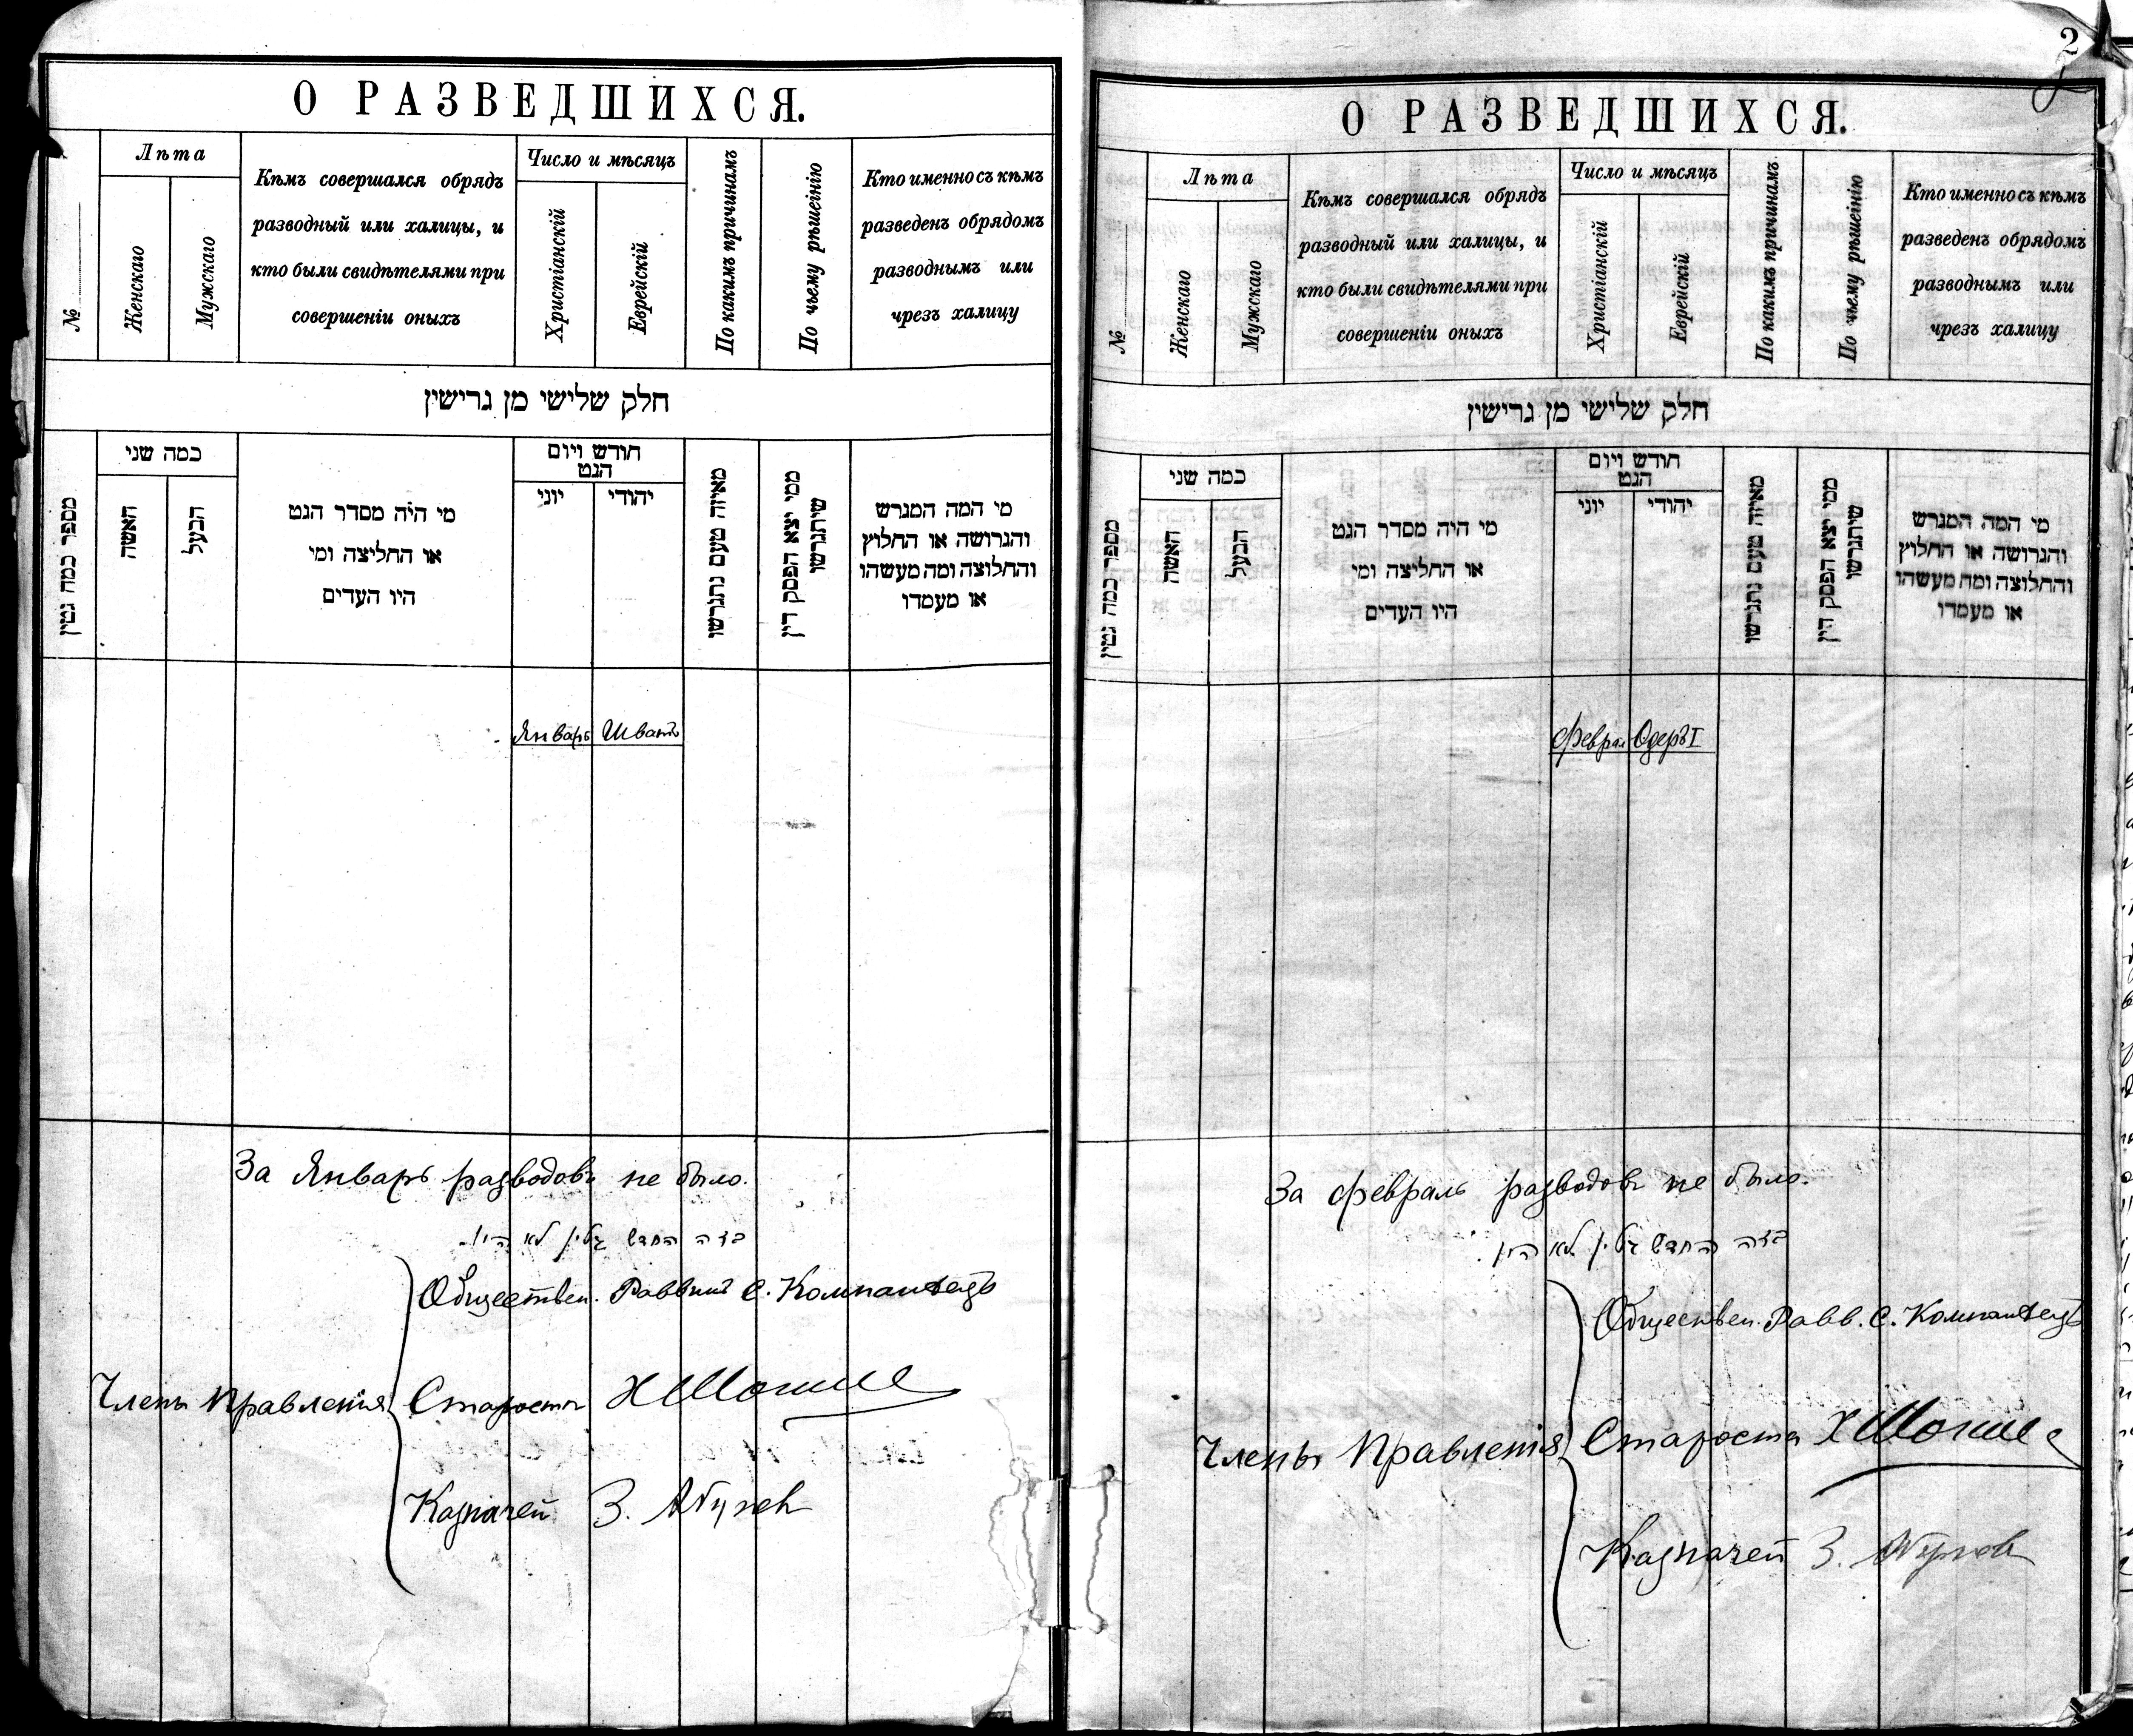 О РАЗВЕДШИХСЯ.
№
Лѣта
Женскаго
Мужскаго
Кѣмъ совершался обрядъ
разводный или халицы, и
кто были свидѣтелями при
совершеніи оныхъ
Число и мѣсяцъ
Христіанскій
Еврейскій
По какимъ причинамъ
По чьему рѣшенію
Кто именно съ кѣмъ
разведенъ обрядомъ
разводнымъ или
чрезъ халицу
חלק שלישי מן גרישין
מספר כמה גטין
כמה שני
האשה
הבעל
מי היה מסדר הגט
או החליצה ומי
היו העדים
חודש ויום
הגט
יוני
יהודי
מאיזה טעם נתגרשו
ממי יצא הפסק דין
שיתגרשו
מי המה המגרש
והגרושה או החלוץ
והחלוצה ומה מעשהו
או מעמדו
Январь Шватъ
За Январь разводовъ не было.
בזה החדש גיטין לא היו.
Обществен. Раввинъ С. Компанѣецъ
Члены Правленія
Староста
Казначей З.
2
О РАЗВЕДШИХСЯ.
№
Лѣта
Женскаго
Мужскаго
Кѣмъ совершался обрядъ
разводный или халицы, и
кто были свидѣтелями при
совершеніи оныхъ
Число и мѣсяцъ
Христіанскій
Еврейскій
По какимъ причинамъ
По чьему рѣшенію
Кто именно съ кѣмъ
разведенъ обрядомъ
разводнымъ или
чрезъ халицу
חלק שלישי מן גרישין
מספר כמה גטין
כמה שני
האשה
הבעל
מי היה מסדר הגט
או החליצה ומי
היו העדים
חודש ויום
הגט
יוני
יהודי
מאיזה טעם נתגרשו
ממי יצא הפסק דין
שיתגרשו
מי המה המגרש
והגרושה או החלוץ
והחלוצה ומה מעשהו
או מעמדו
Феврал Одеръ I
За февраль разводовъ не было.
בזה החדש גיטין לא היו.
Обществен. Равв. С. Компанѣецъ
Члены Правленія
Староста
Казначей З.